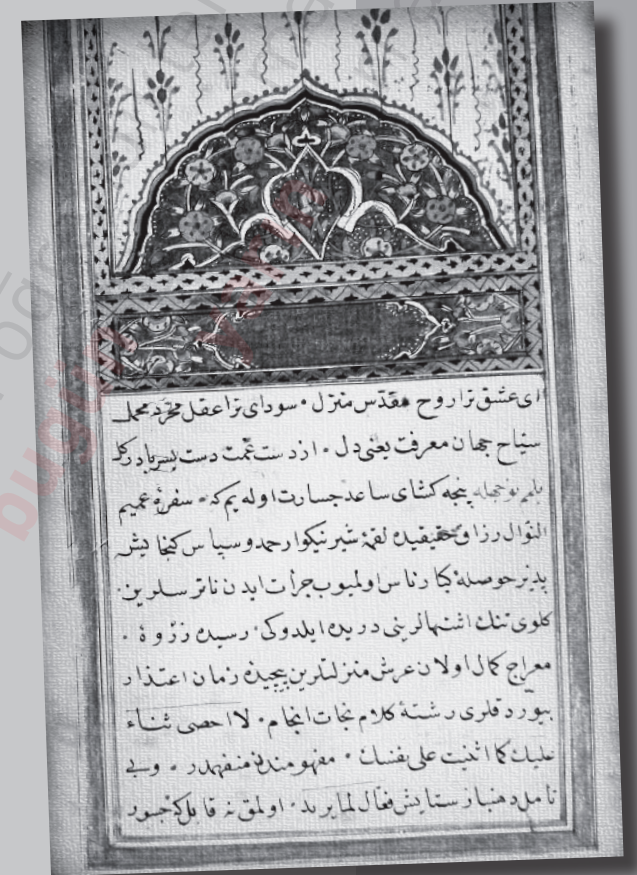 ای عشق ترا روح مقدّس منزل • سودای ترا عقل مجرّد محمل
سیّاح جهان معرفت یعنی دل • از دست غمت دست بسر پا در کل
پنجه کشای ساعد جسارت اوله یم که • سفرهٔ عمیم
النّوال رزاق حقیقیده لقمهٔ شیر نیکوار حمد و سپاس کنجایش
پذیر حوصلهٔ کبار ناس اولمیوب جرأت ایدن ناتر سلرین
کلوی تنك اشتهالرینی دریده ایلدوکی رسیده ذروهٔ •
معراج کمال اولان عرش منزلتلرین پیچیده زمان اعتذار
بیوردقلری رشتهٔ کلام نجات انجام • لا احصی ثناء
علیك کما اثنیت علی نفسك • مفهومندن منفهمدر • وبی
تامل دهنباز ستایش فعّال لما یرید • اولمق نه قابل که جسور
bugün